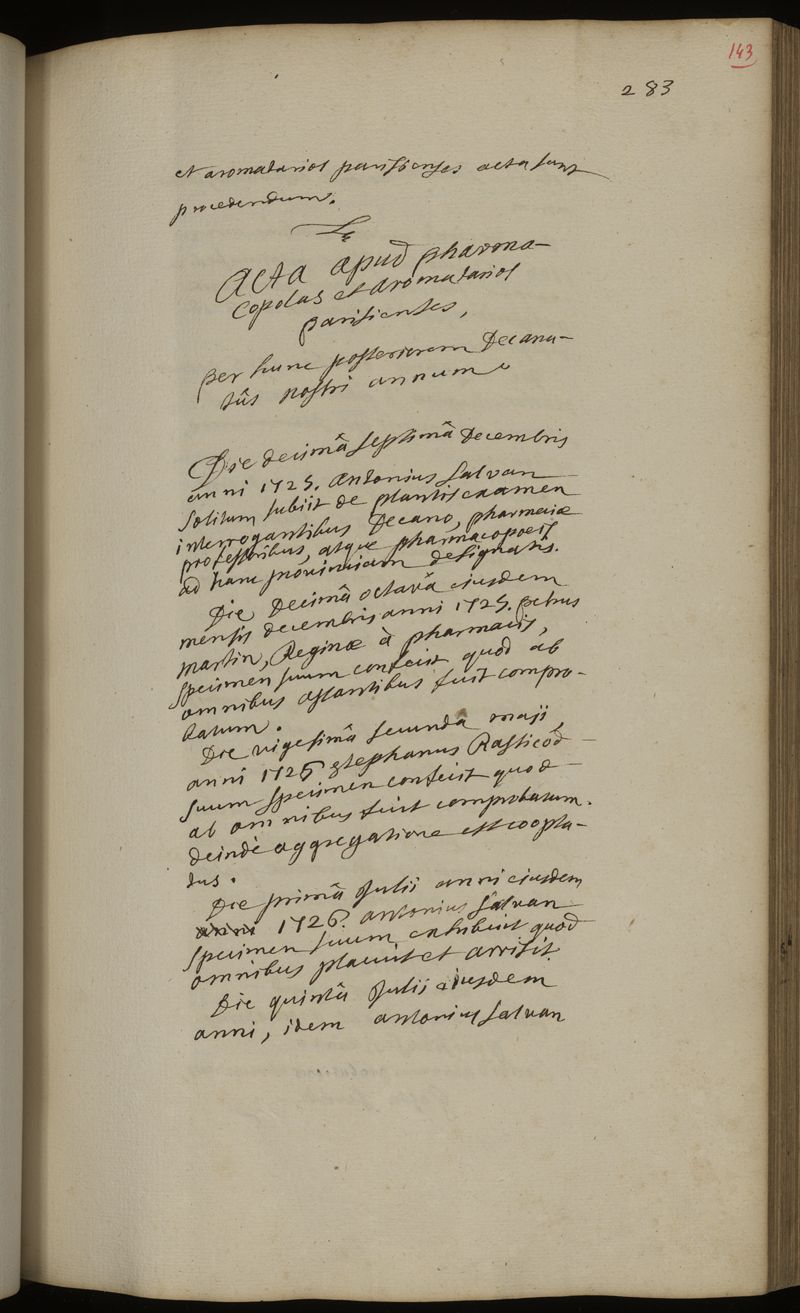 143
283
et aromatarios parisienses acta sunt
procedendum.
Acta apud pharma-
copolas et aromatarios
parisienses,
per hunc posteriorem Decana-
tûs nostri annum
Die decimâ septimâ decembris
anni 1725. antonius salvan
solitum subiit de plantis examen
interrogantibus Decano, pharmaciæ
professoribus, atque pharmacopoeis
ad hanc provinciam designatis.
Die decimâ octavâ eiusdem
mensis decembris anni 1725. petrus
martin, Reginæ à pharmacis,
specimen suum confecit quod ab
omnibus astantibus fuit compro-
batum.
Die vigesimâ secunda maji,
anni 1726 stephanus Rassicod
suum specimen confecit quod
ab omnibus fuit comprobatum.
deindè aggregatione est coopta-
tus.
Die primâ Julii anni eiusdem
anni 1726. antonius salvan
specimen suum exhibuit quod
omnibus placuit et arrisit.
Die quintâ Julii eiusdem
anni, idem antonius salvan